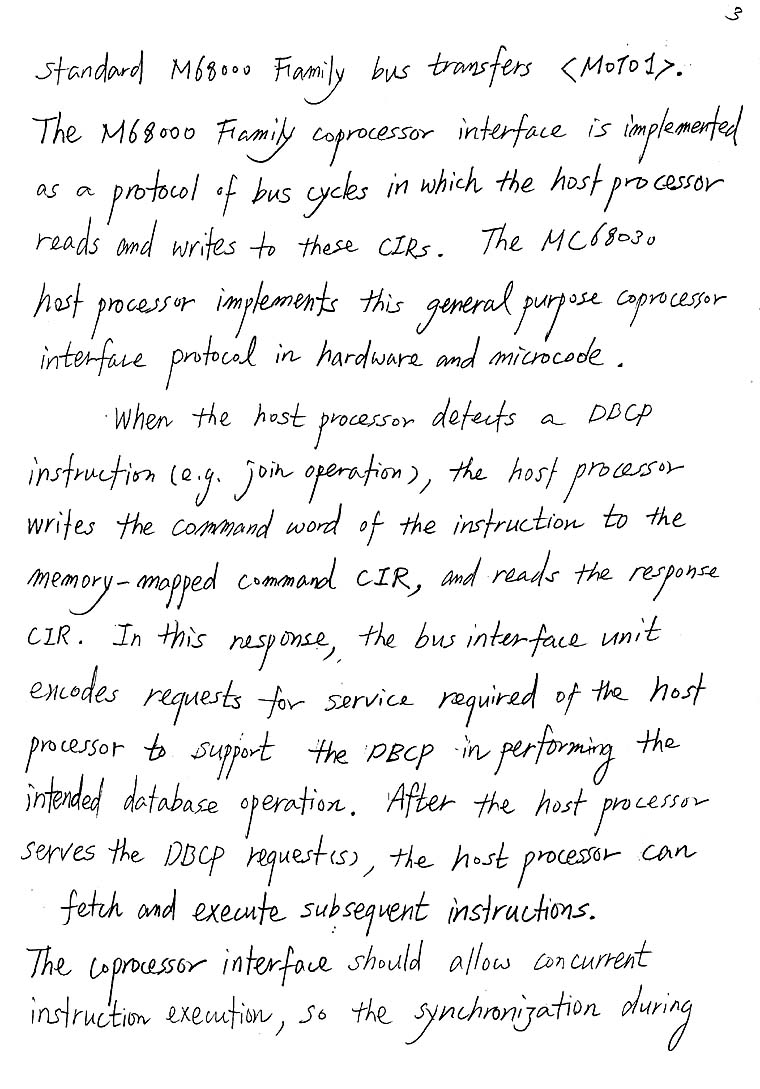 3
standard M68000 Family bus transfers <MOTO1>.
The M68000 Family coprocessor interface is implemented
as a protocol of bus cycles in which the host processor
reads and writes to these CIRs. The MC68030
host processor implements this general purpose coprocessor
interface protocol in hardware and microcode.
When the host processor detects a DBCP
instruction (e.g. join operation), the host processor
writes the command word of the instruction to the
memory-mapped command CIR, and reads the response
CIR. In this response, the bus interface unit
encodes requests for service required of the host
processor to support the DBCP in performing the
intended database operation. After the host processor
serves the DBCP request(s), the host processor can
fetch and execute subsequent instructions.
The coprocessor interface should allow concurrent
instruction execution, so the synchronization during